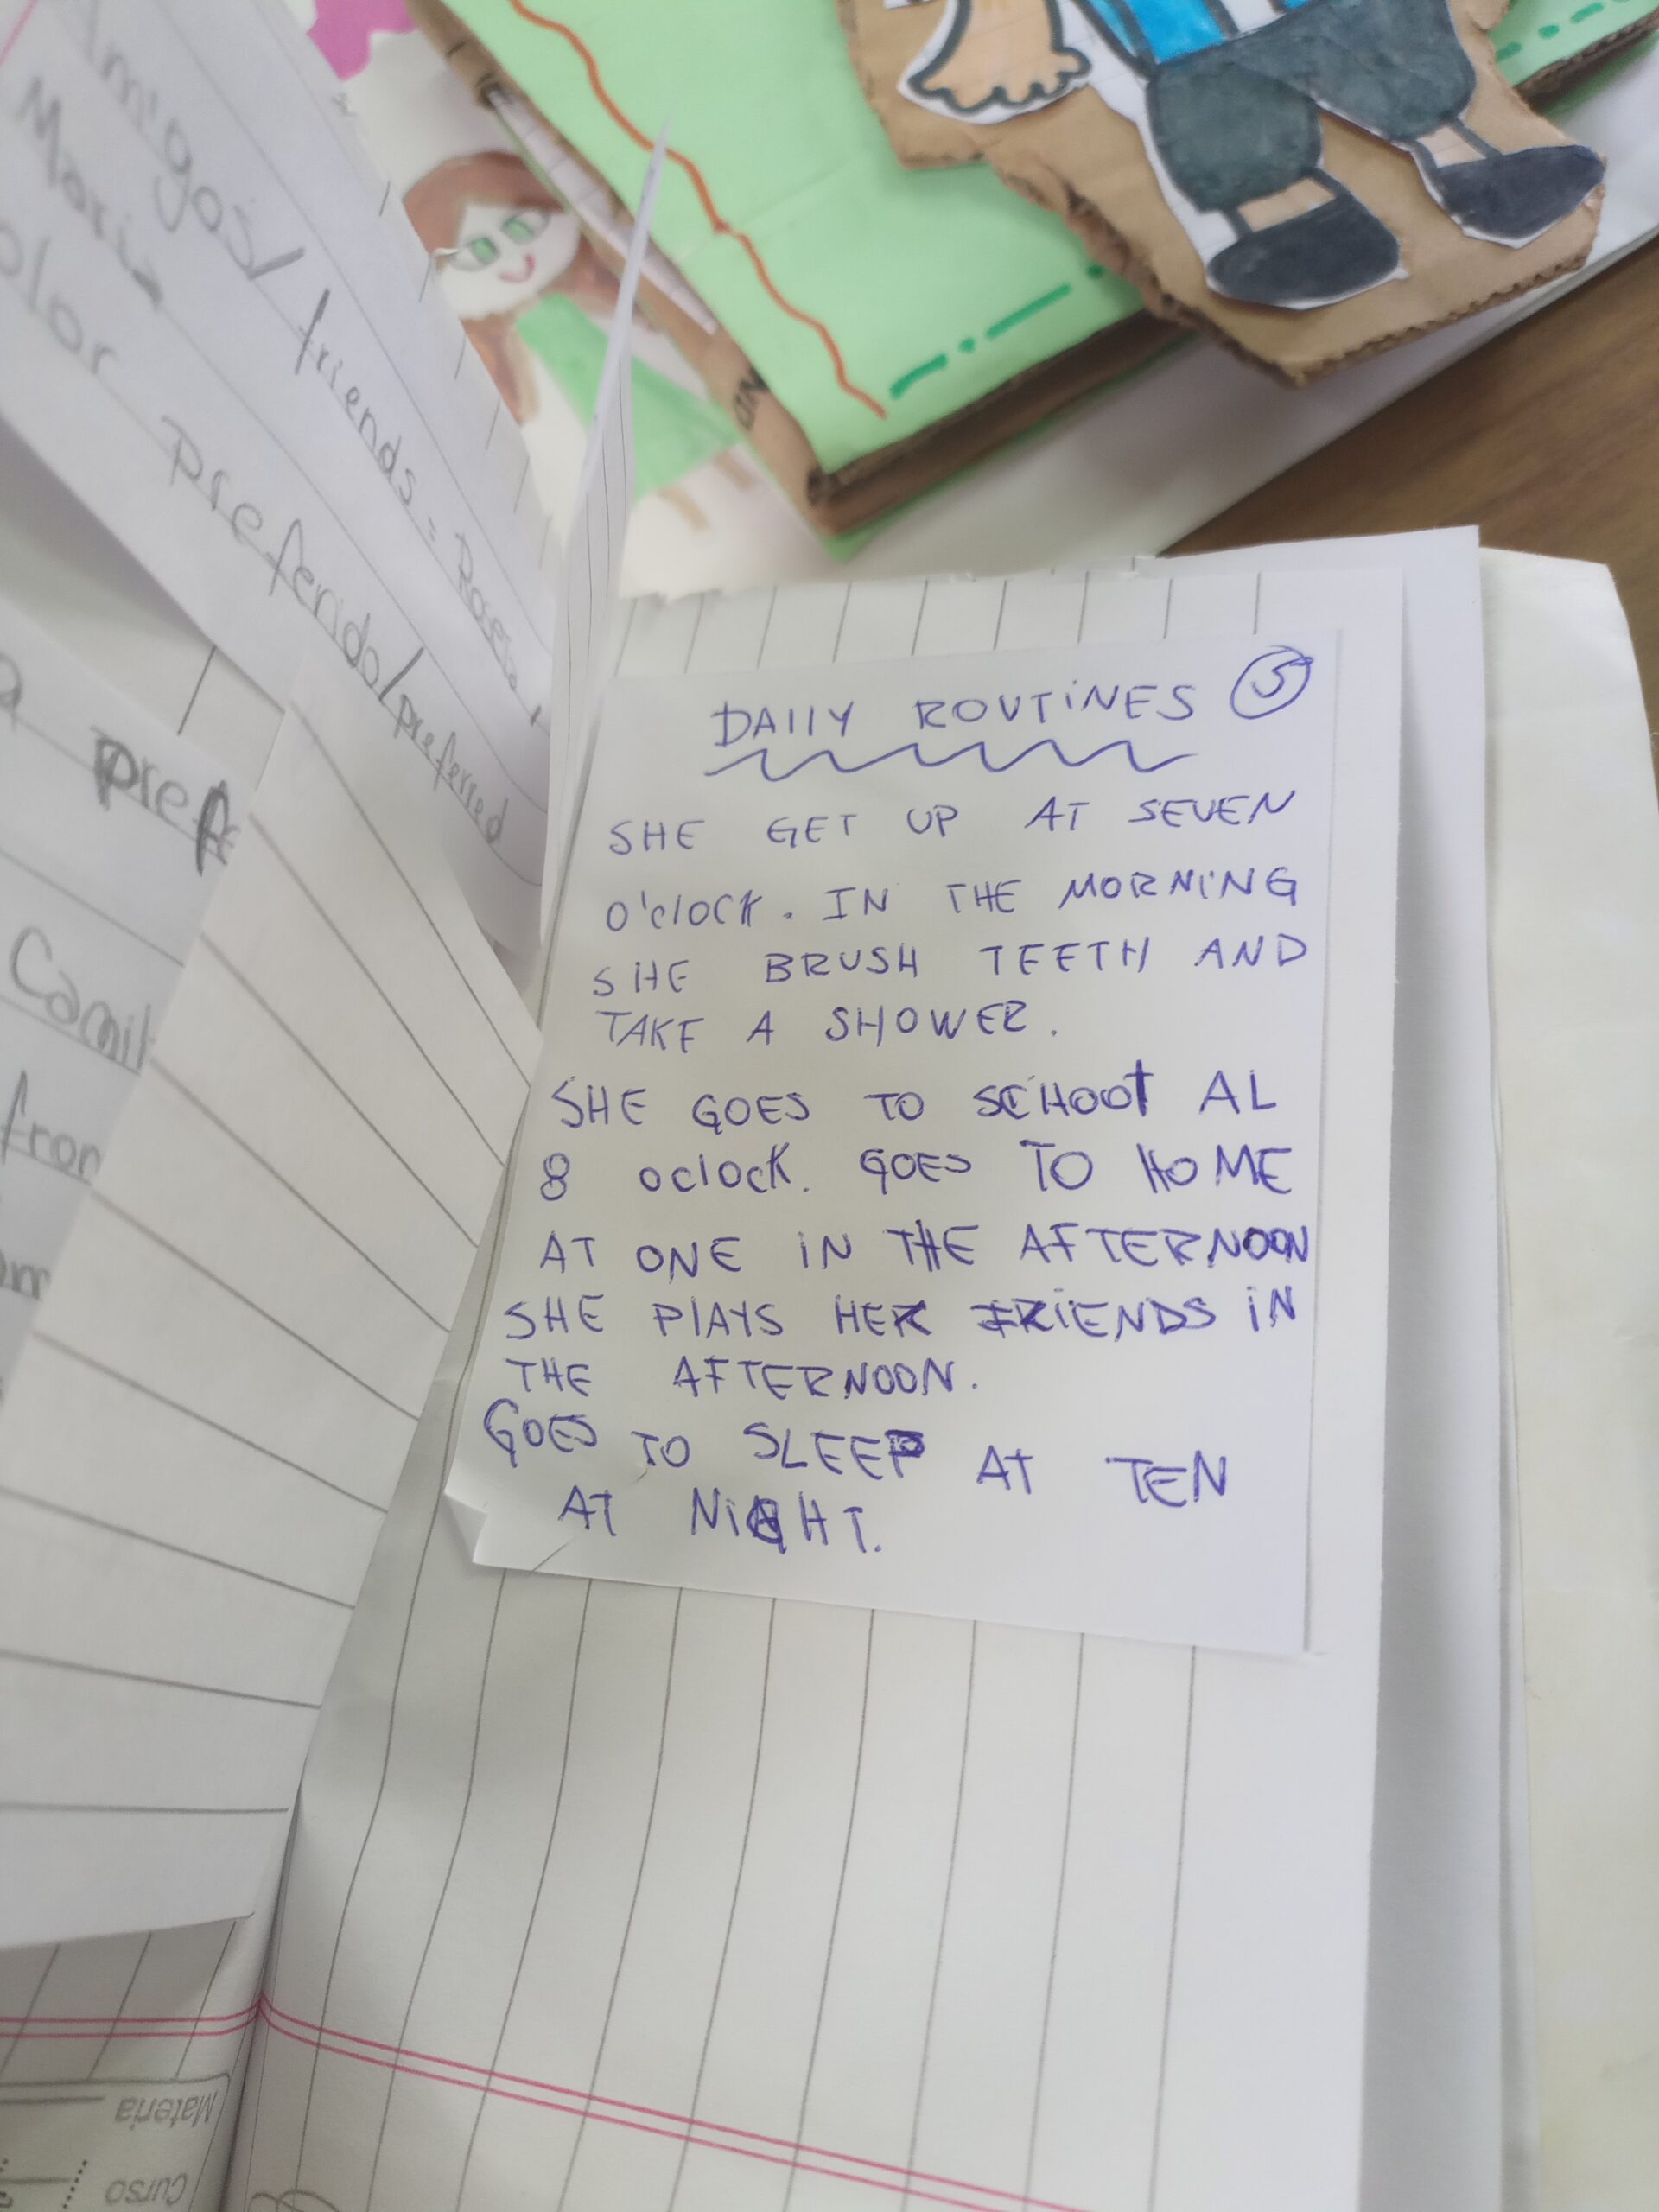 Amigos/friends = Rosa
Maria
olor preferido/preferred
a pref
Camil
from
DAILY ROUTINES 5
SHE GET UP AT SEVEN
O'CLOCK. IN THE MORNING
SHE BRUSH TEETH AND
TAKE A SHOWER.
SHE GOES TO SCHOOL AL
8 oclock. GOES TO HOME
AT ONE IN THE AFTERNOON
SHE PLAYS HER FRIENDS IN
THE AFTERNOON.
GOES TO SLEEP AT TEN
AT NIGHT.
Materia
Curso